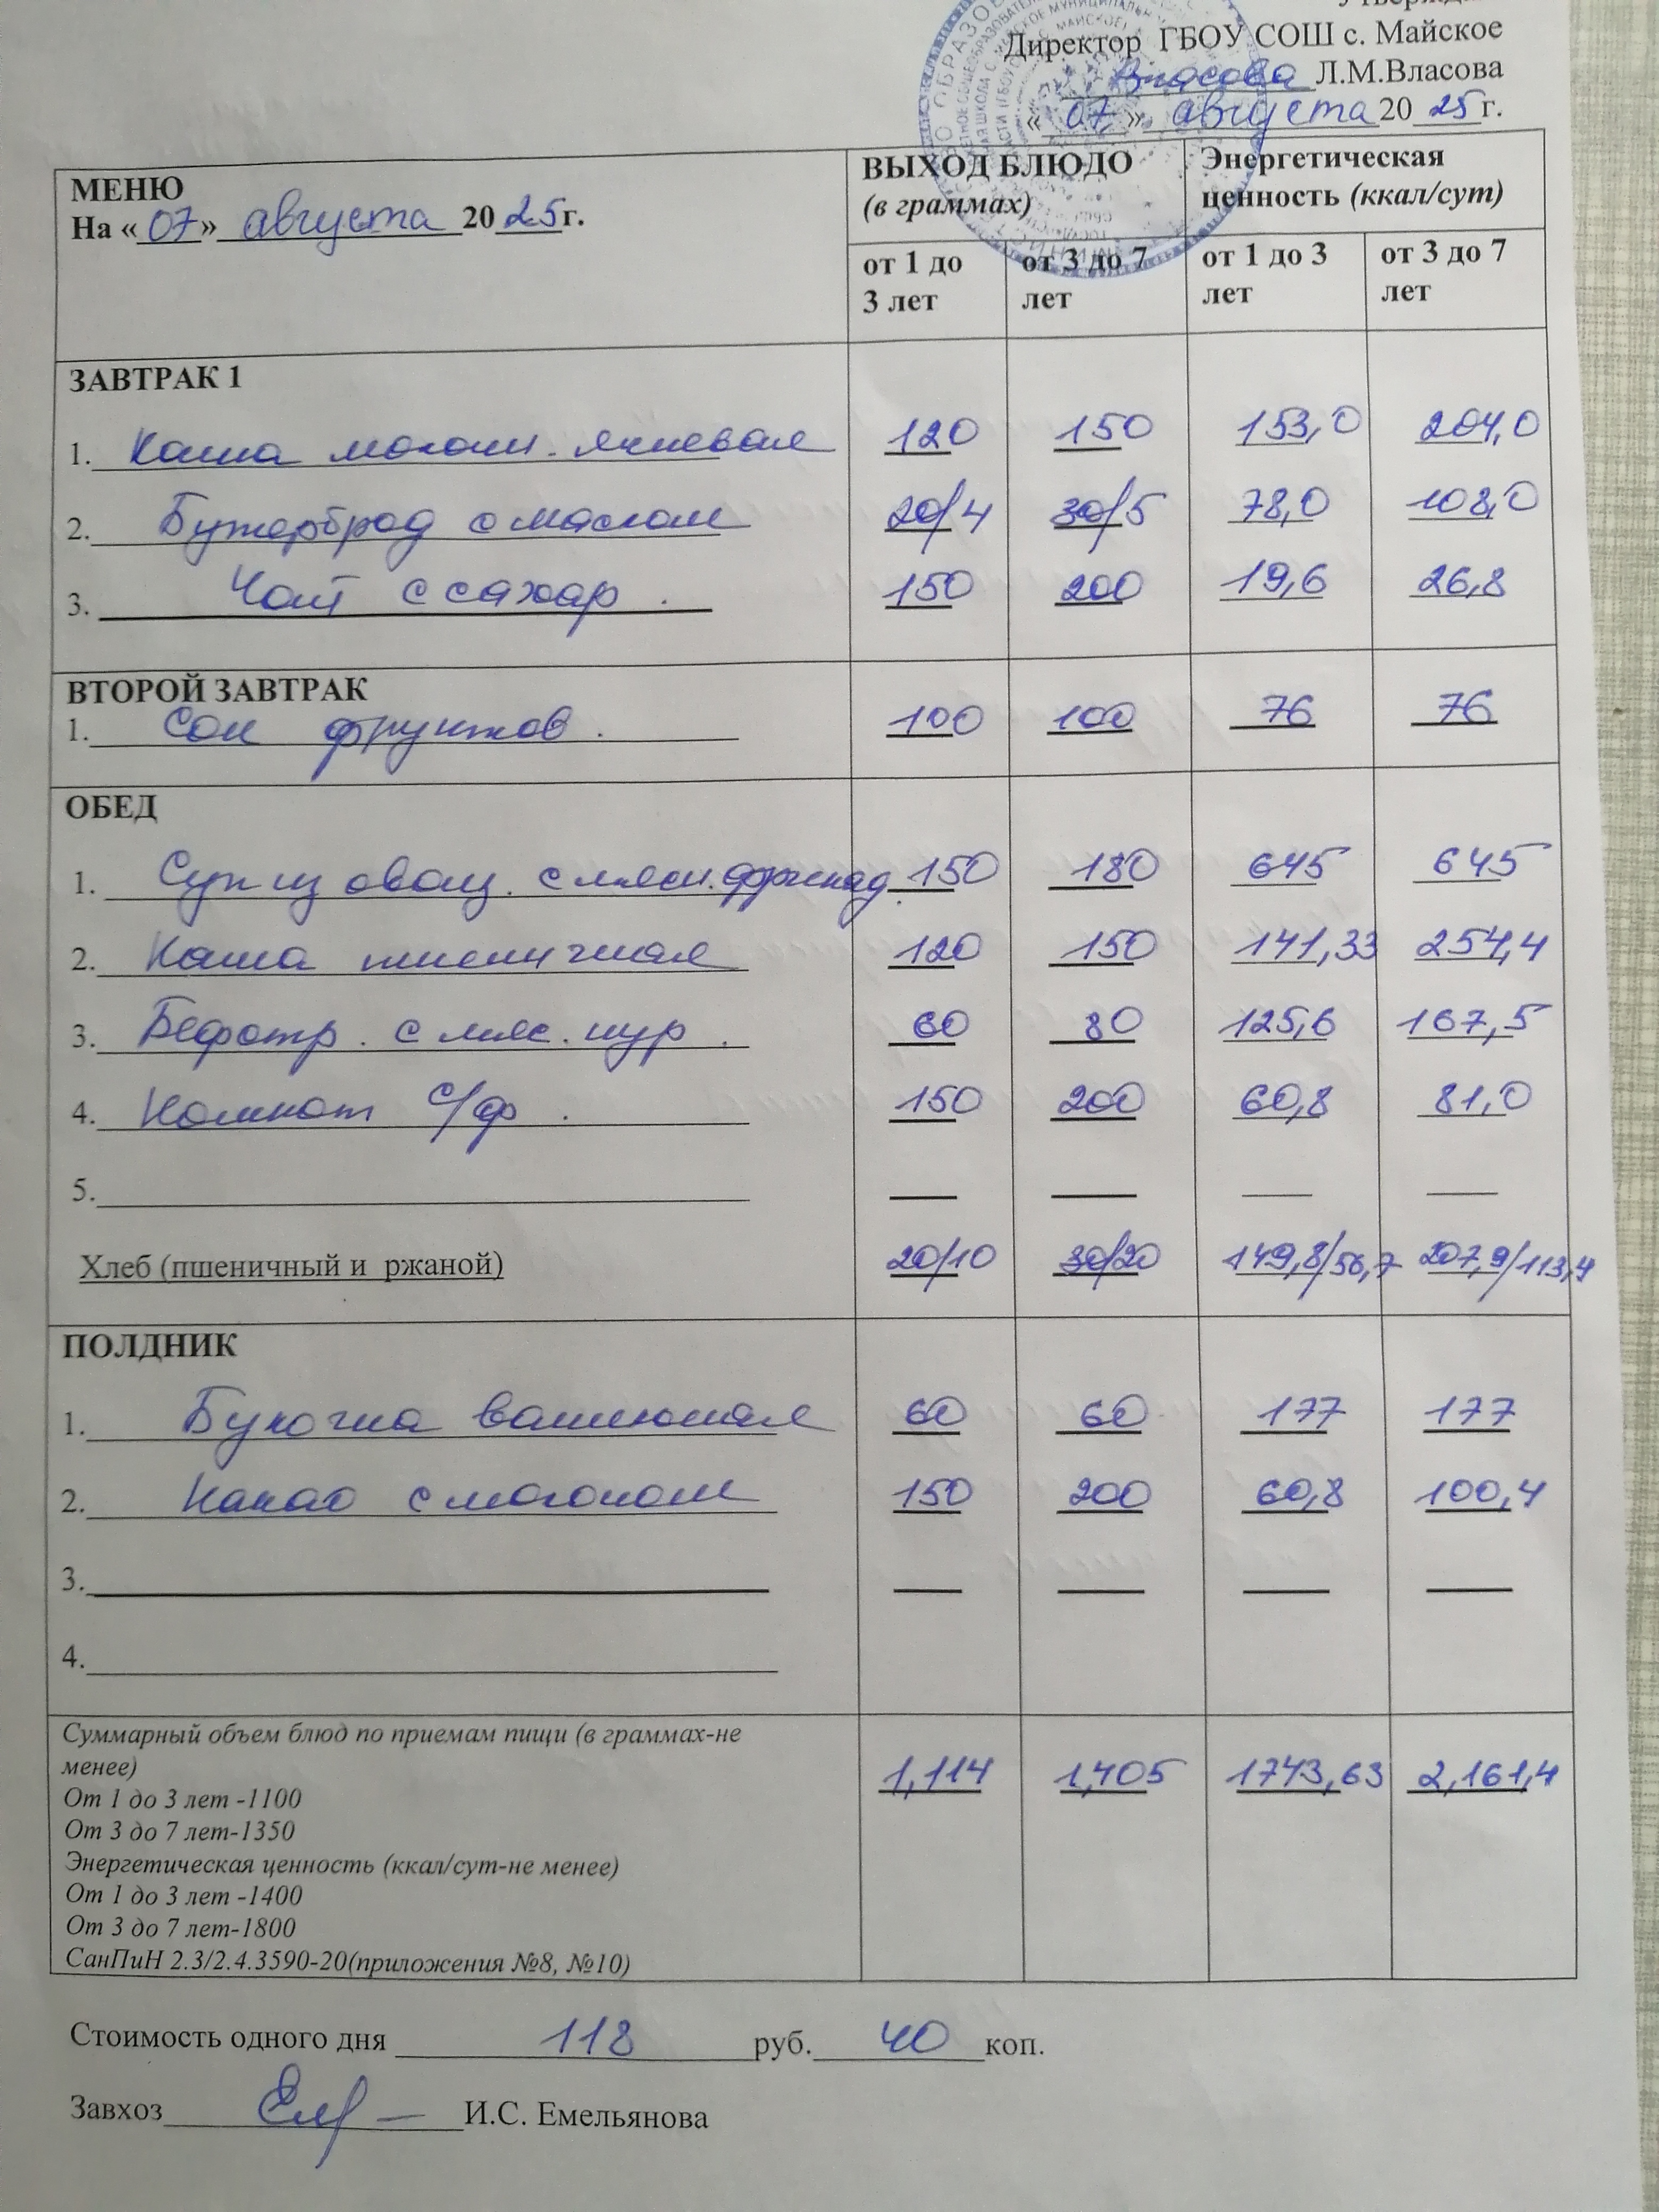 Директор ГБОУ СОШ с. Майское
Власова Л.М.Власова
« 07 » августа 20 25 г.
МЕНЮ
На « 07 » августа 20 25 г.
ВЫХОД БЛЮДО
(в граммах)
Энергетическая
ценность (ккал/сут)
от 1 до 3 лет
от 3 до 7 лет
от 1 до 3 лет
от 3 до 7 лет
ЗАВТРАК 1
1. Каша молочн. ячневая 120 150 153,0 204,0
2. Бутерброд с маслом 20/4 30/5 78,0 108,0
3. Чай с сахар. 150 200 19,6 26,8
ВТОРОЙ ЗАВТРАК
1. Сок фруктов. 100 100 76 76
ОБЕД
1. Суп из овощ. с мясн. фрикад. 150 180 645 645
2. Каша пшеничная 120 150 141,33 254,4
3. Бефстр. с мяс. кур. 60 80 125,6 167,5
4. Компот с/ф. 150 200 60,8 81,0
5.
Хлеб (пшеничный и ржаной) 20/10 30/20 149,8/56,7 207,9/113,4
ПОЛДНИК
1. Булочка ванильная 60 60 177 177
2. Какао с молоком 150 200 60,8 100,4
3.
4.
Суммарный объем блюд по приемам пищи (в граммах-не
менее) 1,114 1,405 1743,63 2,161,4
От 1 до 3 лет -1100
От 3 до 7 лет-1350
Энергетическая ценность (ккал/сут-не менее)
От 1 до 3 лет -1400
От 3 до 7 лет-1800
СанПиН 2.3/2.4.3590-20(приложения №8, №10)
Стоимость одного дня 118 руб. 40 коп.
Завхоз И.С. Емельянова